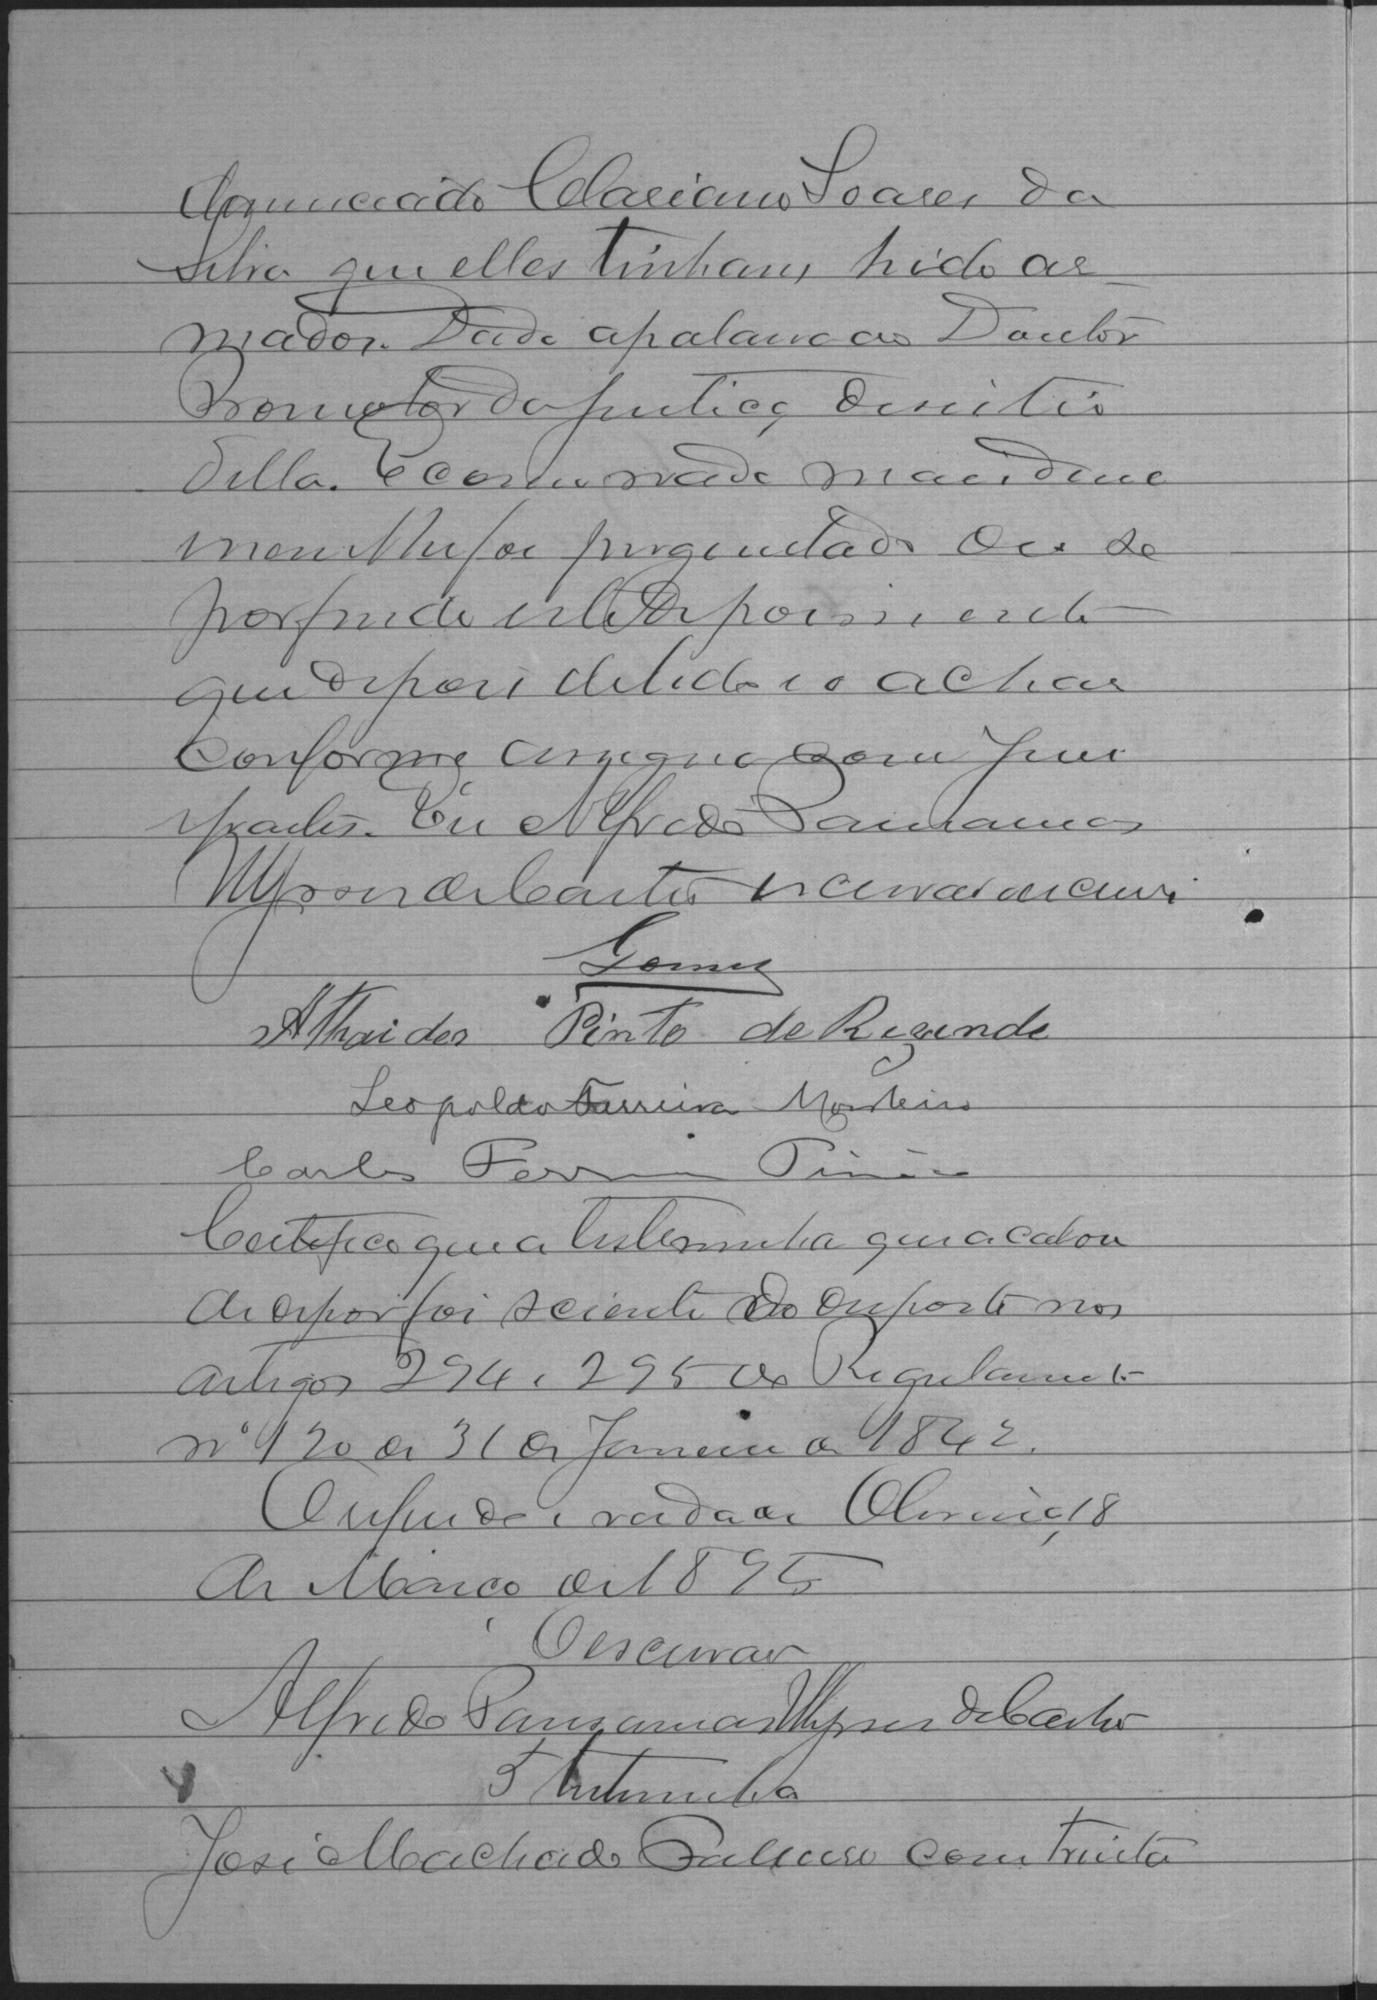 denunciado Clariano Soares da
Silva que elles tinham hido ar-
mados. Dada apalavra ao Doutor
Promotor da justiça desistio
della. E como nada mais disse
nem lhe foi perguntado deu se
por findo este depoimento
que depois de lido e o achar
conforme assigna com Juiz
e partes. Eu Alfredo
Ulysses de Castro escrivão escrevi
Gomes
Athaides Pinto de Rezende
Leopoldo Ferreira Monteiro
Carlos
Certifico que a testemunha que acabou
de depor foi sciente do disposto nos
artigos 294 e 295 do Regulamento
nº 120 de 31 de Janeiro de 1842.
O referido é verdade 18
de Março de 1895
O escrivão
Alfredo Ulysses de Castro
5 testemunha
José Machado com trinta